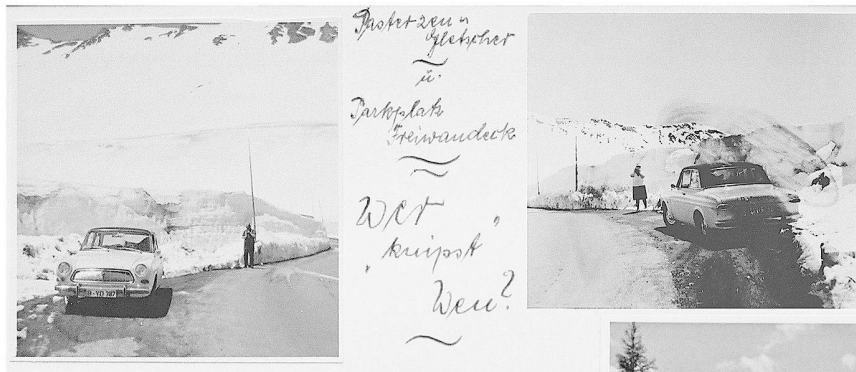 Pasterzen =
Gletscher
u.
Parkplatz
Freiwandeck
Wer
"knipst"
Wen?